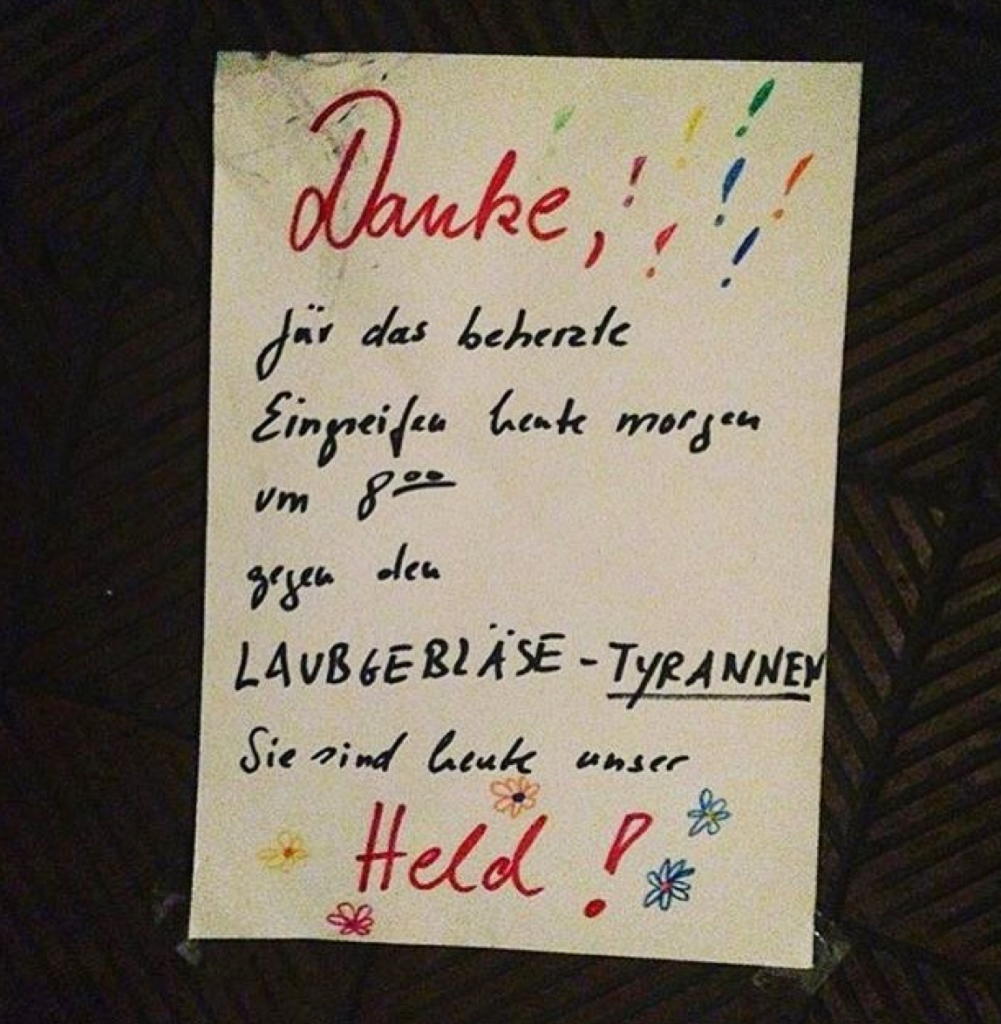 Danke, ! ! ! ! ! ! ! !
für das beherzte
Eingreifen heute morgen
um 8ºº
gegen den
LAUBGEBLÄSE - TYRANNEN
Sie sind heute unser
Held !